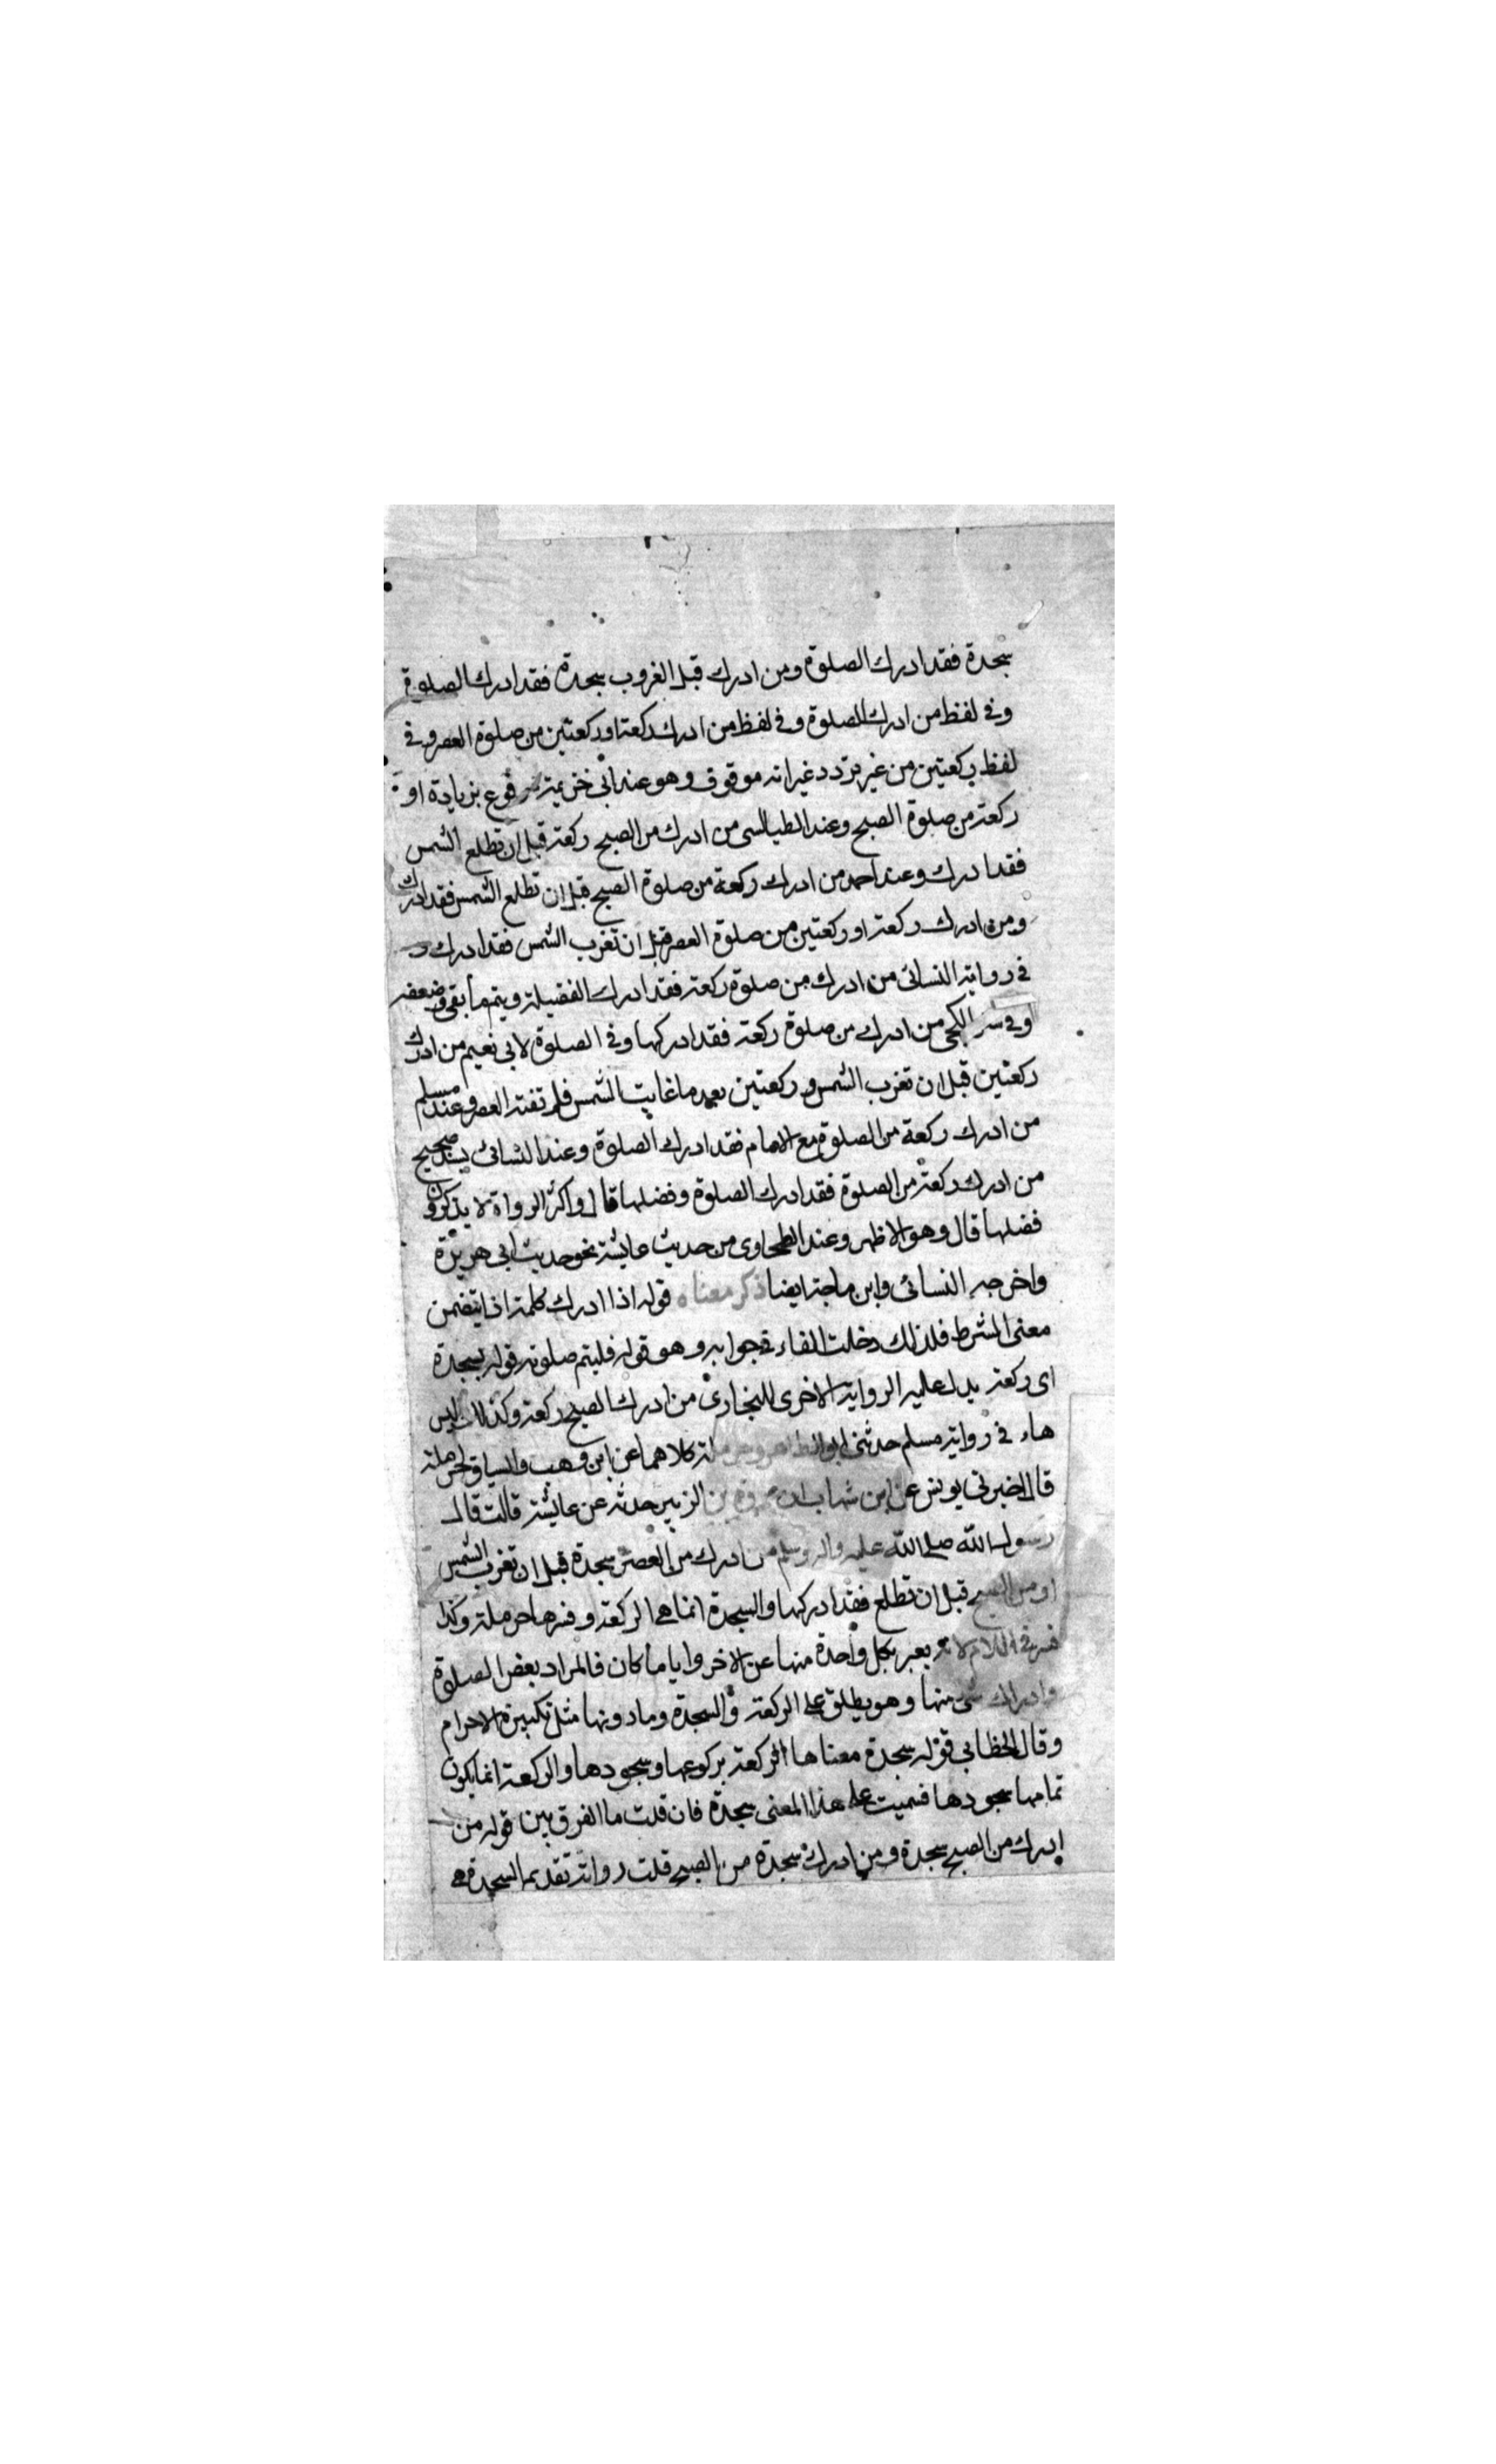 سجدة فقد ادرك الصلوة ومن ادرك قبل الغروب سجدة فقد ادرك الصلوة
وفي لفظ من ادرك الصلوة وفي لفظ من ادرك ركعة او ركعتين من صلوة العصر وفي
لفظ ركعتين من غير تردد غير انه موقوف وهو عند ابن خزيمة مرفوع بزيادة او
ركعة من صلوة الصبح وعند الطيالسى من ادرك من الصبح ركعة قبل ان تطلع الشمس
فقد ادرك وعند احمد من ادرك ركعة من صلوة الصبح قبل ان تطلع الشمس فقد ادرك
ومن ادرك ركعة او ركعتين من صلوة العصر قبل ان تغرب الشمس فقد ادرك و
في رواية النسائى من ادرك من صلوة ركعة فقد ادرك الفضيلة ويتم ما بقى وضعفه
وفي سنن الكجى من ادرك من صلوة ركعة فقد ادركها وفي الصلوة لابي نعيم من ادرك
ركعتين قبل ان تغرب الشمس وركعتين بعد ما غابت الشمس فلم تفته العصر وعند مسلم
من ادرك ركعة من الصلوة مع الامام فقد ادرك الصلوة وعند النسائى بسند صحيح
من ادرك ركعة من الصلوة فقد ادرك الصلوة وفضلها قال واكثر الرواة لا يذكرون
فضلها قال وهو الاظهر وعند الطحاوى من حديث عايشة نحو حديث ابي هريرة
واخرجه النسائى وابن ماجة ايضا ذكر معناه قوله اذا ادرك كلمة اذا يتضمن
معنى الشرط فلذلك دخلت الفاء في جوابه وهو قوله فليتم صلوته قوله بسجدة
اى ركعة يدل عليه الرواية الاخرى للبخارى من ادرك الصبح ركعة وكذلك ليس
هاء في رواية مسلم حدثنى ابو الطاهر وحرملة كلاهما عن ابن وهب والسياق لحرملة
قال اخبرنى يونس عن ابن شهاب ان عروة بن الزبير حدثه عن عايشة قالت قال
رسول الله صلى الله عليه واله وسلم من ادرك من العصر سجدة قبل ان تغرب الشمس
او من الصبح قبل ان تطلع فقد ادركها والسجدة انما هى الركعة وفسرها حرملة وكذا
فسر في اللام لانه يعبر بكل واحدة منها عن الاخر وايا ما كان فالمراد بعض الصلوة
وادراك شئ منها وهو يطلق على الركعة والسجدة وما دونها مثل تكبيرة الاحرام
وقال الخطابي قوله سجدة معناها الركعة بركوعها وسجودها والركعة انما يكون
تمامها بسجودها فسميت على هذا المعنى سجدة فان قلت ما الفرق بين قوله من
ادرك من الصبح سجدة ومن ادرك سجدة من الصبح قلت رواية تقديم السجدة هى